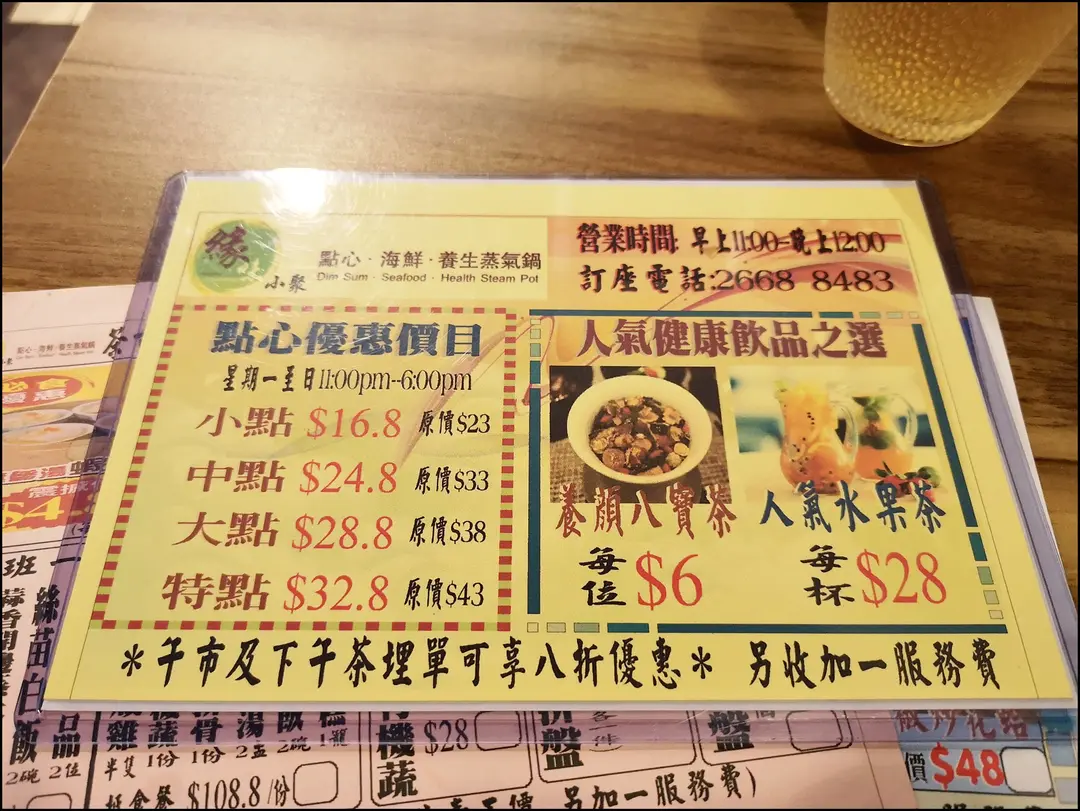 緣
小聚
點心·海鮮·養生蒸氣鍋
Dim Sum · Seafood · Health Steam Pot
營業時間: 早上11:00=晚上12:00
訂座電話:2668 8483
點心優惠價目
星期一至日11:00pm--6:00pm
小點 $16.8 原價$23
中點 $24.8 原價$33
大點 $28.8 原價$38
特點 $32.8 原價$43
人氣健康飲品之選
養顏八寶茶
每位 $6
人氣水果茶
每杯 $28
*午市及下午茶埋單可享八折優惠* 另收加一服務費
點心·海鮮·養生蒸氣鍋
小聚
茶
必食
$4
班
絲苗白飯
2碗
品
2位
雞
半隻
蔬
1份
骨
1份
湯
2盅
飯
2碗
糕
1籠
$108.8 /份
機蔬
$28
拼盤
一件
盤
另收加一服務費)
價 $48